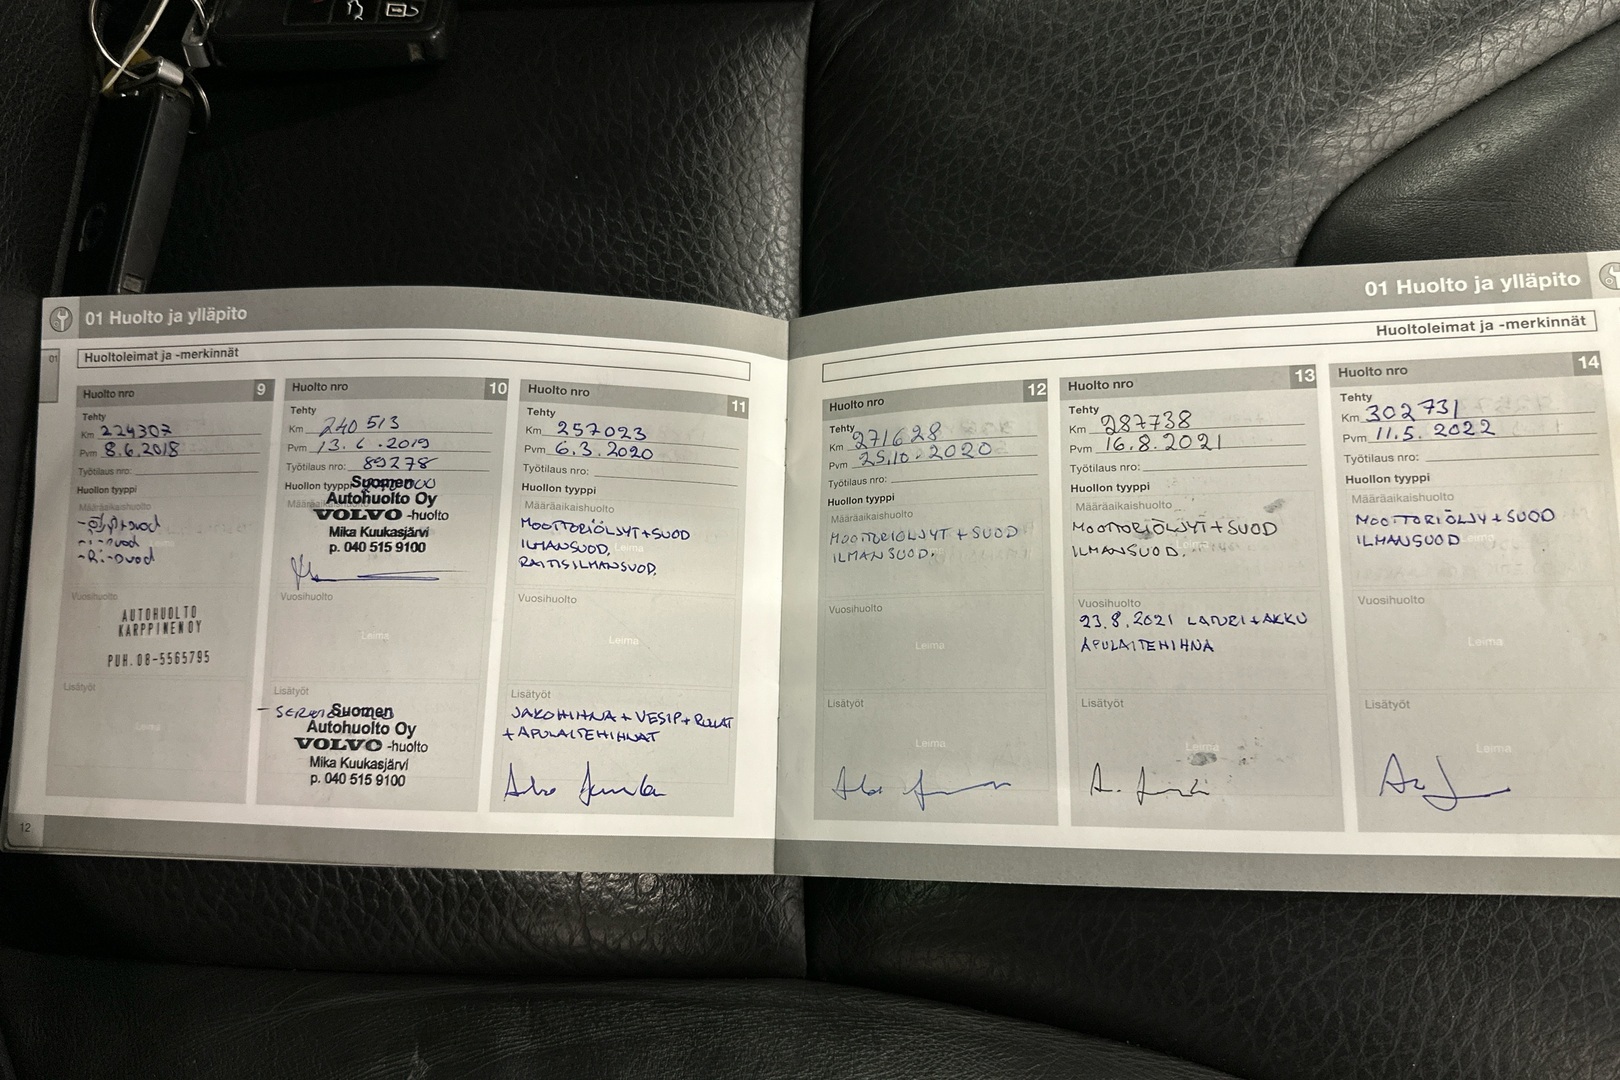 01 Huolto ja ylläpito
01
Huoltoleimat ja -merkinnät
Huolto nro 9
Tehty
Km 224307
Pvm 8.6.2018
Työtilaus nro:
Huollon tyyppi
Määräaikaishuolto
- i-suod
- Ri-suod
Leima
Vuosihuolto
AUTOHUOLTO
KARPPINEN OY
PUH. 08-5565795
Lisätyöt
Leima
12
Huolto nro 10
Tehty
Km 240 513
Pvm 13.6.2019
Työtilaus nro: 89278
Huollon tyyppi
Määräaikaishuolto
Suomen
Autohuolto Oy
VOLVO -huolto
Mika Kuukasjärvi
p. 040 515 9100
Vuosihuolto
Leima
Lisätyöt
Suomen
Autohuolto Oy
VOLVO -huolto
Mika Kuukasjärvi
p. 040 515 9100
Huolto nro 11
Tehty
Km 257023
Pvm 6.3.2020
Työtilaus nro:
Huollon tyyppi
Määräaikaishuolto
MOOTTORIÖLJYT + SUOD
ILMANSUOD. Leima
RAITISILMANSUOD.
Vuosihuolto
Leima
Lisätyöt
JAKOHIHNA + VESIP + RULLAT
+ APULAITEHIHNAT
01 Huolto ja ylläpito
Huoltoleimat ja -merkinnät
Huolto nro 12
Tehty
Km 271628
Pvm 25.10.2020
Työtilaus nro:
Huollon tyyppi
Määräaikaishuolto
MOOTTORIÖLJYT + SUOD
ILMANSUOD.
Vuosihuolto
Leima
Lisätyöt
Leima
Huolto nro 13
Tehty
Km 287738
Pvm 16.8.2021
Työtilaus nro:
Huollon tyyppi
Määräaikaishuolto
MOOTTORIÖLJYT + SUOD
ILMANSUOD. Leima
Vuosihuolto
23.8.2021 LATURI + AKKU
APULAITEHIHNA
Leima
Lisätyöt
Leima
Huolto nro 14
Tehty
Km 302731
Pvm 11.5.2022
Työtilaus nro:
Huollon tyyppi
Määräaikaishuolto
MOOTTORIÖLJY + SUOD
ILMANSUOD Leima
Vuosihuolto
Leima
Lisätyöt
Leima